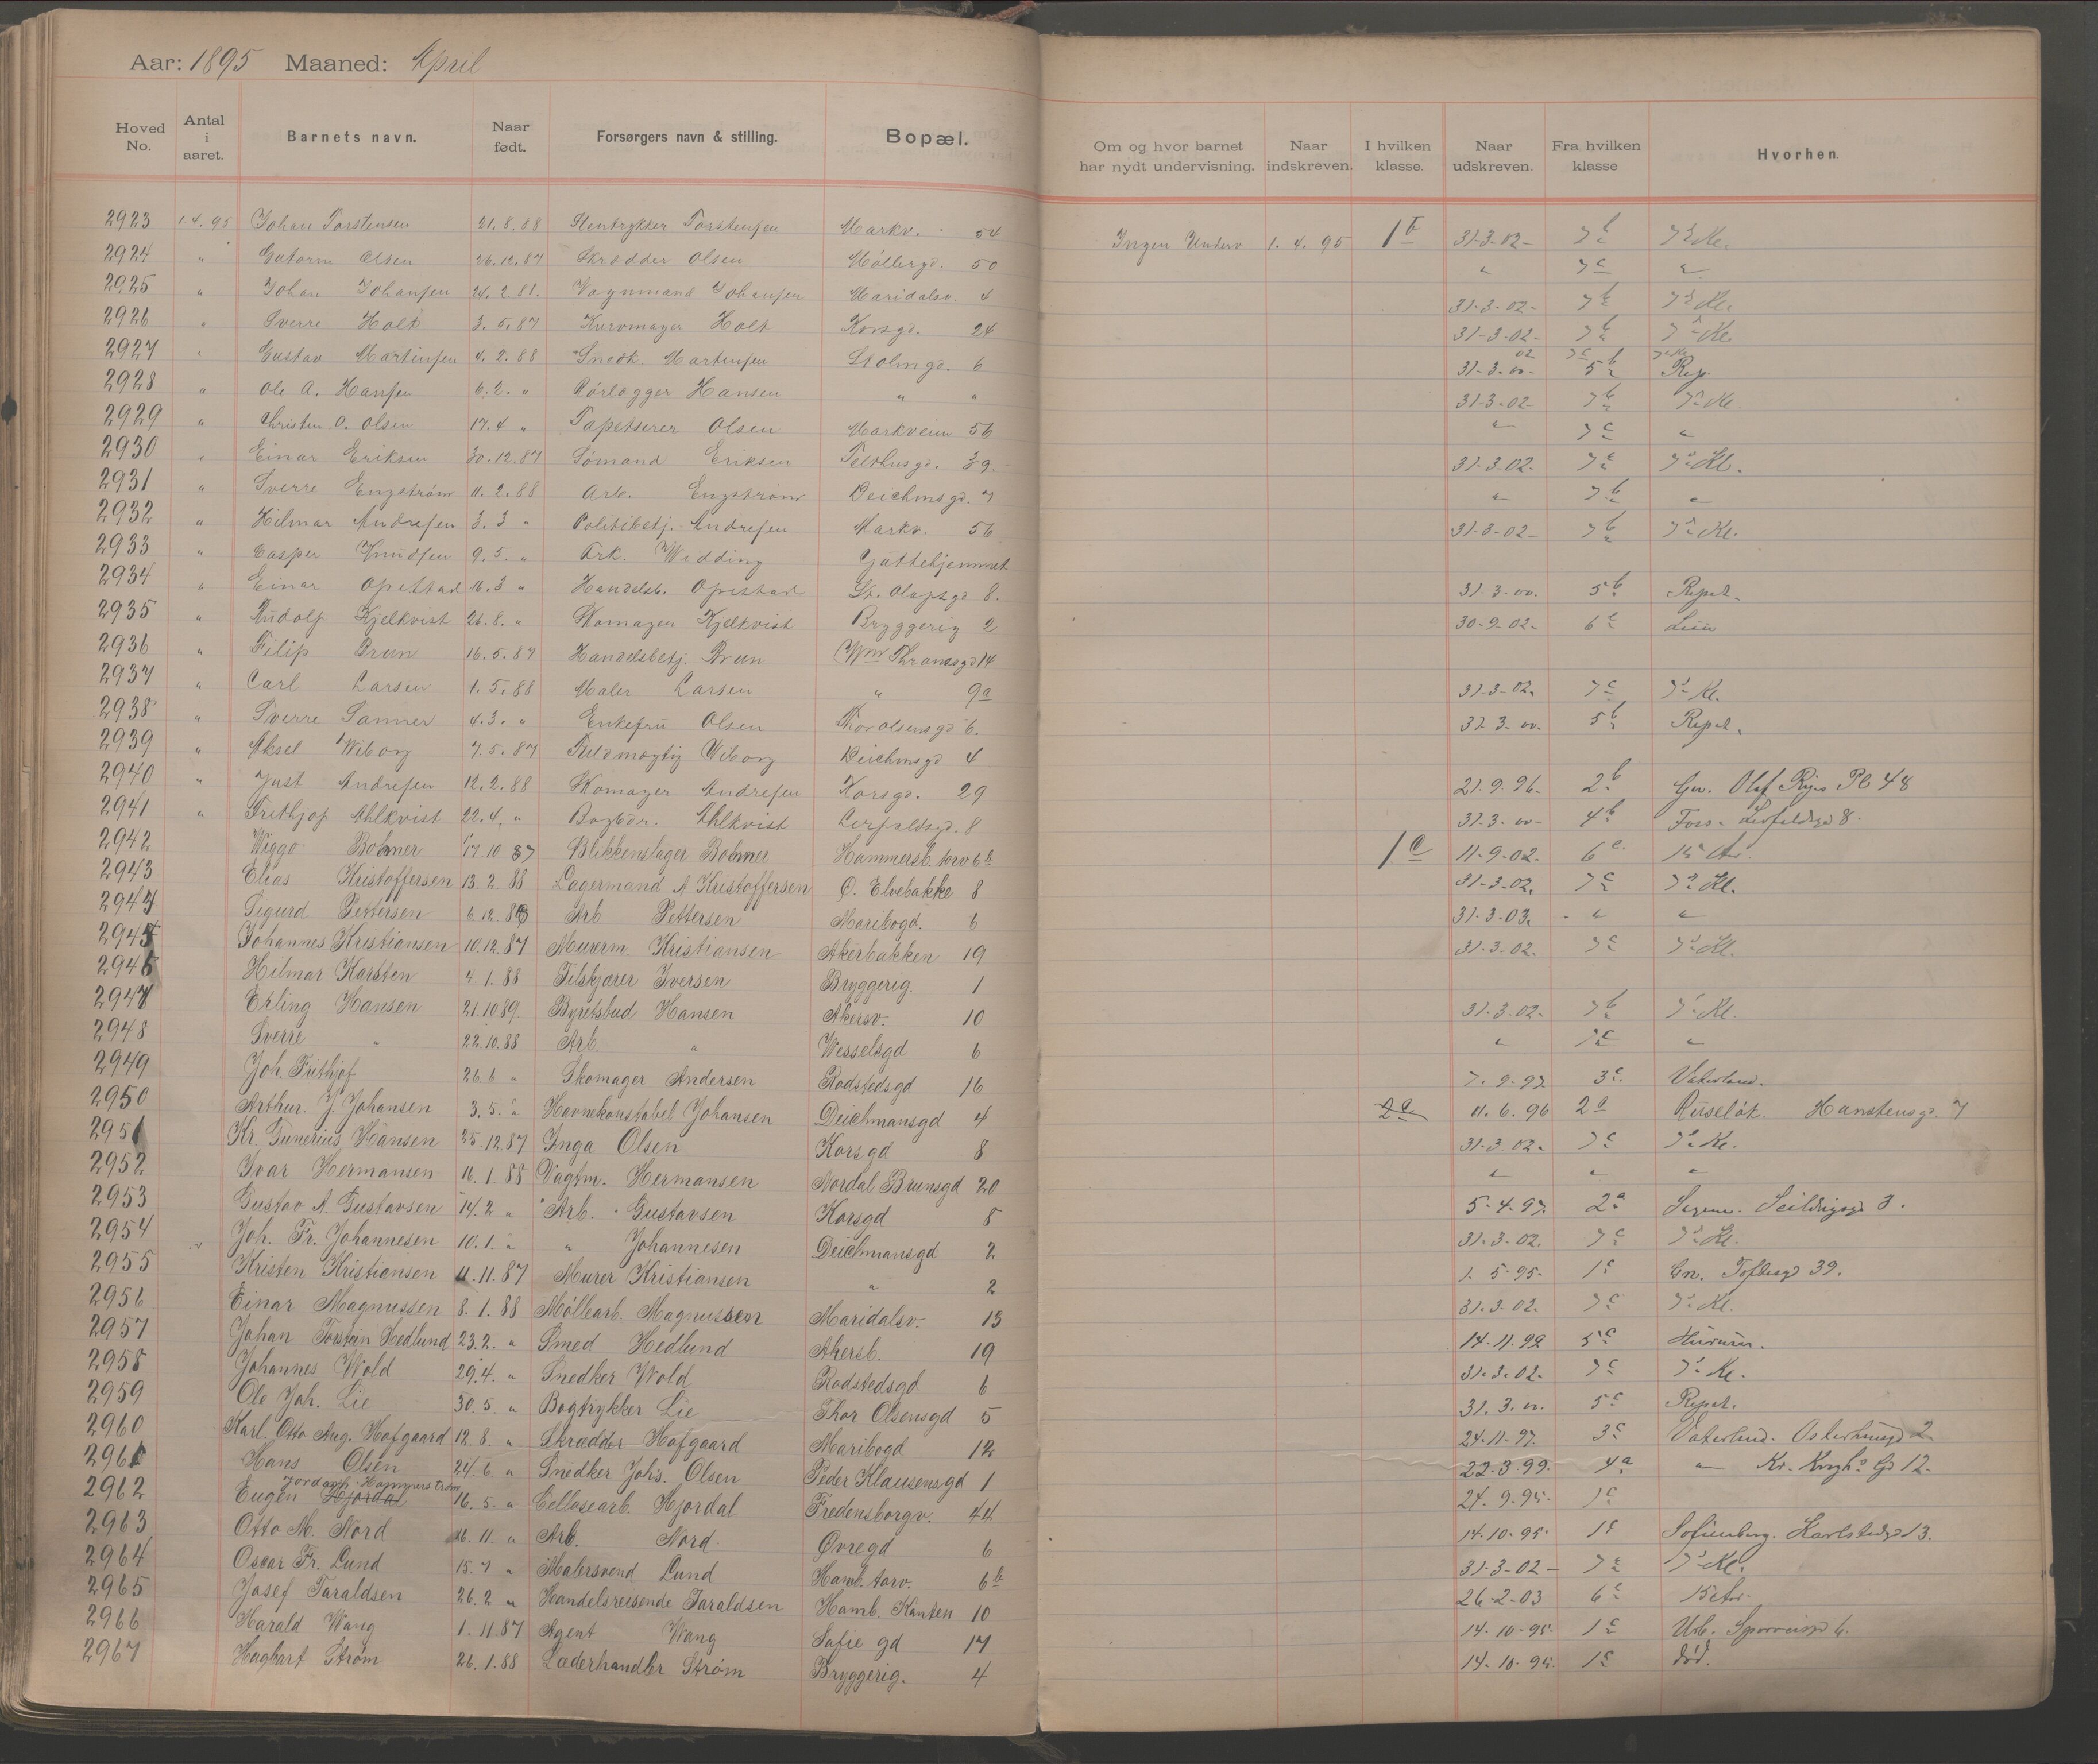 Aar: 1895 Maaned: April
Hoved No. Antal i aaret. Barnets navn. Naar født. Forsørgers navn & stilling. Bopæl. Om og hvor barnet har nydt undervisning. Naar indskreven. I hvilken klasse. Naar udskreven. Fra hvilken klasse Hvorhen.
2923 1.4.95 Johan Torstensen 21.8.88 Torstensen Markv. 54 Ingen Underv 1.4.95 1b 31-3-02- 7b 7de Kl.
2924 " Gutorm Olsen 26.12.87 Skrædder Olsen Møllergd. 50 " 7c "
2925 " Johan Johansen 24.2.88. Vognmand Johansen Maridalsv. 4 31-3-02- 7b 7de Kl.
2926 " Sverre Holt 3.5.87 Kurvmager Holt Korsgd. 24 31-3-02- 7b 7de Kl.
2927 " Gustav Martinsen 4.2.88 Snedk. Martinsen Stolmgd. 6 31-3-00- 5b Rep.
2928 " Ole A. Hansen 6.2. " Rørlægger Hansen " " 31-3-02- 7b 7de Kl.
2929 " Christen O. Olsen 17.4 " Tapetserer Olsen Markveien 56 " 7c "
2930 " Einar Eriksen 30.12.87 Sømand Eriksen Telthusgd. 39. 31-3-02- 7c 7de Kl.
2931 " Sverre Engstrøm 11.2.88 Arb. Engstrøm Deichmsgd. 7 " 7b "
2932 " Hilmar Andresen 3.3 " Politibetj. Andresen Markv. 56 31-3-02- 7b 7de Kl.
2933 " Casper Knudsen 9.5. " Frk. Wedding Guttehjemmet
2934 " Einar Opestad 16.3 " Handelsb. Opestad St. Olafsgd 8. 31-3-00. 5b Repet.
2935 " Rudolf Kjelkvist 26.8. " Skomager Kjelkvist Bryggerig 2 30-9-02- 6c
2936 " Filip Brun 16.5.87 Handelsbetj. Brun Wm Thranesgd 14
2937 " Carl Larsen 1.5.88 Maler Larsen " 9a 31-3-02. 7c 7de Kl.
2938 " Sverre Sanner 4.3. " Enkefru Olsen Thor Olsensgd 6. 31.3.00. 5b Repet.
2939 " Aksel Wiborg 7.5.87 Fuldmægtig Wiborg Deichmsgd 4
2940 " Just Andresen 12.2.88 Skomager Andresen Korsgd. 29 21.9.96- 2b Grü. Olaf Ryes Pl 48
2941 " Frithjof Ahlkvist 22.4. " Bogbdr. Ahlkvist Leirfaldsgd. 8 31.3.00- 4b Foss- Leirfaldsgd 8.
2942 Wiggo Bohmer 17.10 87 Blikkenslager Bohmer Hammersb. torv 6b 1c 11-9-02. 6c
2943 Elias Kristoffersen 13.2.88 Lagermand A Kristoffersen O. Elvebakke 8 31-3-02. 7c 7de Kl.
2944 Sigurd Pettersen 6.12.88 Arb Pettersen Maribogd. 6 31-3-03. " "
2945 Johannes Kristiansen 10.12.87 Murerm. Kristiansen Akerbakken 19 31-3-02. 7c 7de Kl.
2946 Hilmar Karsten 4.1.88 Tilskjærer Iversen Bryggerig. 1
2947 Erling Hansen 21.10 89. Byretsbud Hansen Akersv. 10 31.3.02- 7b 7de Kl.
2948 Sverre " 22.10.88 Arb. " Wesselsgd 6 " 7c "
2949 Joh. Frithjof 26.6 " Skomager Andersen Rodstedsgd 16 7.9.97. 3c. Vaterland.
2950 Arthur. J. Johansen 3.5. " Havnekonstabel Johansen Deichmansgd 4 2a 11.6.96 2a Ruseløk. Hanstensgd. 7
2951 Kr. Tunerius Hansen 25.12.87 Inga Olsen Korsgd 8 31-3.02. 7c 7de Kl.
2952 Ivar Hermansen 16.1.88 Vagtm. Hermansen Nordal Brunsgd 20 " " "
2953 Gustav A. Gustavsen 14.2 " Arb. Gustavsen Korsgd 8 5-4-97. 2a Seildugsgd 3.
2954 Joh. Fr. Johannesen 10.1. " " Johannesen Deichmansgd 2 31-3-02. 7c 7de Kl.
2955 Kristen Kristiansen 11.11.87 Murer Kristiansen " 2 1.5-95- 1c Grü. Toftesgd 39.
2956 Einar Magnussen 8.1.88 Møllearb. Magnussen Maridalsv. 13 31.3.02. 7c 7de Kl.
2957 Johan Torstein Hedlund 23.2. " Smed Hedlund Akersb. 19 14-11.99 5c
2958 Johannes Wold 29.4. " Snedker Wold Rodstedsgd 6 31.3.02. 7c 7de Kl.
2959 Ole Joh. Lie 30.5. " Bogtrykker Lie Thor Olsensgd 5 31.3.00. 5c Repet.
2960 Karl. Otto Aug. Hofgaard 12.8. " Skrædder Hofgaard Maribogd 12 24-11-97. 3c Vaterland. Osterhausgd 2
2961 Hans Olsen 24.6. " Snedker Johs. Olsen Peder Klausensgd 1 22-3.99. 4a " Kr. Kroghs Gd 12.
Jordanh. Hammerstrøm
2962 Eugen Hjordal 16.5. " Cellosearb. Hjordal Fredensborgv. 44 24.9.95- 1c
2963 Otto M. Nord 16.11. " Arb. Nord. Øvregd 6 14-10-95- 1c Sofienberg. Karlstadgd 13.
2964 Oscar Fr. Lund 15.7 " Malersvend Lund Ham. torv. 6b 31-3-02- 7c 7de Kl.
2965 Josef Taraldsen 26.2 " Handelsreisende Taraldsen Hamb. Kanten 10 26-2-03 6c
2966 Harald Wang 1.11.87 Agent Wang Sofie gd 17 14-10-95- 1c
2967 Hagbart Strøm 26.1.88 Læderhandler Strøm Bryggerig. 4 14-10-95. 1c død.